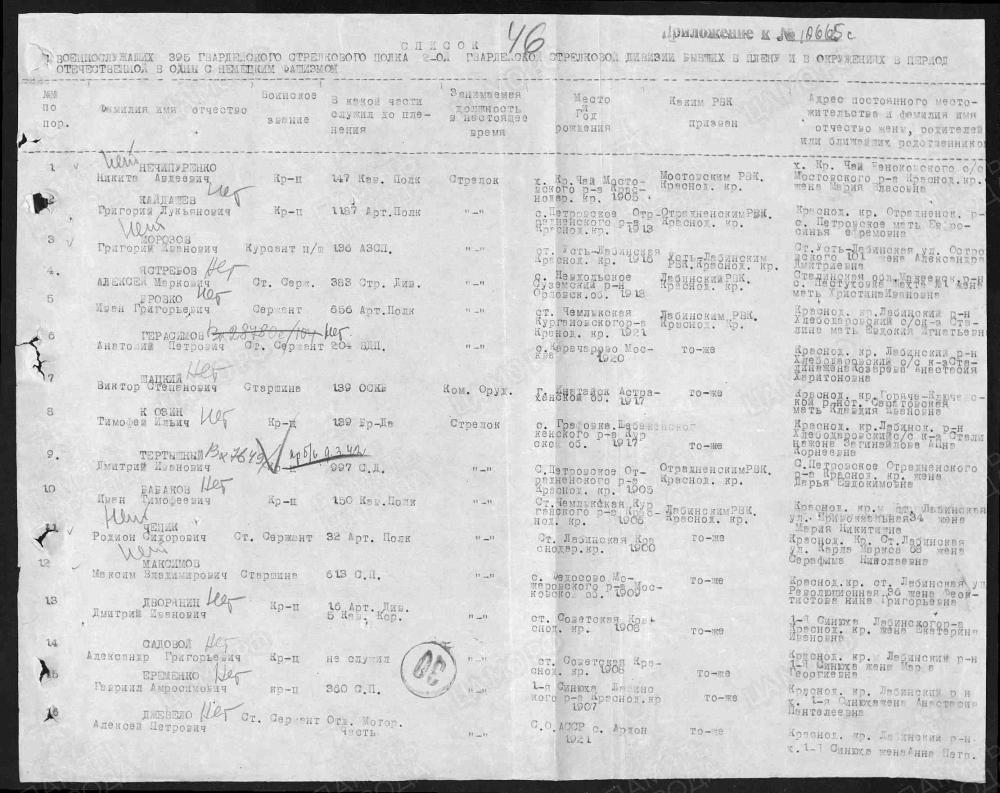 46
Приложение к № 10665с
СПИСОК
ВОЕННОСЛУЖАЩИХ 395 ГВАРДЕЙСКОГО СТРЕЛКОВОГО ПОЛКА 2-ОЙ ГВАРДЕЙСКОЙ СТРЕЛКОВОЙ ДИВИЗИИ БЫВШИХ В ПЛЕНУ И В ОКРУЖЕНИЯХ В ПЕРИОД
ОТЕЧЕСТВЕННОЙ В ОЙНЫ С НЕМЕЦКИМ ФАШИЗМОМ
№№ по пор.
Фамилия имя отчество
Воинское звание
В какой части служил до пленения
Занимаемая должность в настоящее время
Место и Год рождения
Каким РВК призван
Адрес постоянного местожительства и фамилия имя отчество жены, родителей или ближайших родственников
1 НЕЧИПУРЕНКО Нет
Никита Авдеевич Кр-ц 147 Кав. Полк Стрелок
х. Кр. Чай Мостовского р-а Краснодар. кр. 1905
Мостовским РВК. Краснод. кр.
Мостовского р-а Краснод.кр. жена Мария Власовна
2 КАЙДАШЕВ Нет
Григорий Лукьянович Кр-ц 1187 Арт.Полк "-"
с.Петровское Отрадненского р-а Краснод.кр. 1913
Отрадненским РВК. Краснод. кр.
Краснод. кр. Отрадненск. р-
с. Петровское мать Ефросинья Ефремовна
3 МОРОЗОВ Нет
Григорий Иванович Курсант п/ш 136 АЗСП. "-"
ст. Усть-Лабинская Краснод. кр. 1918
Усть-Лабинским РВК.Краснод. кр.
Ст.Усть-Лабинская ул. Остро
вского 101 жена Александра Дмитриевна
4. ЯСТРЕБОВ Нет
АЛЕКСЕЙ Маркович Ст. Серж. 383 Стр. Див. "-"
Суземский р-н Орловск.об. 1918
Лабинский РВК. Краснод. кр.
мать ХристинаИвановна
5 БРОВКО Нет
Иван Григорьевич Сержант 656 Арт.Полк "-"
ст. Чемлыкская Кургановского р-а Краснод. кр. 1921
Лабинским РВК. Краснод. Кр.
Краснод. кр.Лабинский р-н
Хлебодаровский с/ск-з Сталина мать Евдокия Игнатьевн
6 ГЕРАСИМОВ Нет
Анатолий Петрович Ст. Сержант 204 ВДП. "-"
с.Карачарово Москва 1920
то-же
Краснод. кр. Лабинский р-н
Хлебодаровский с/с к-з Сталинажена Азарева Анастасия Харитоновна
7 ШАЦКИЙ Нет
Виктор Степанович Старшина 139 ОСКБ Ком. Оруд.
Астраханской об. 1917
то-же
Краснод. кр. Горяче-Ключевской р-нст. Саратовская
мать Клавдия Ивановна
8 К ОЗИН Нет
Тимофей Ильич Кр-ц 139 Бр-да Стрелок
с. Графовка Шебекинского р-а Курской об. 1917
то-же
Краснод. кр.Лабинск. р-н
Хлебодаровскийс/с к-з Стали
нажена Загинайлова Анна Корнеевна
9. ТЕРТЫШНЫЙ пр б/в 9.3.42
Дмитрий Иванович 997 С.Д. "-"
С.Петровское Отрадненского р-а Краснод. кр. 1905
ОтрадненскимРВК. Краснод. кр.
С.Петровское Отрадненского р-а Краснод. кр. жена Дарья Евдокимовна
10 БАБАКОВ Нет
Иван Тимофеевич Кр-ц 150 Кав.Полк "-"
Ст.Чемлыкская Курганского р-а Краснод. кр. 1906
ЛабинскимРВК. Краснод. кр.
Краснод. кр. ст. Лабинская
ул. Привокзальная34 жена Мария Никитишна
11 ЧЕПИК Нет
Родион Сидорович Ст. Сержант 32 Арт. Полк "-"
Ст. Лабинская Краснодар.кр. 1900
то-же
Краснод. Кр. Ст.Лабинская
ул. Карла Маркса 68 жена Серафима Николаевна
12 МАКСИМОВ Нет
Максим Владимирович Старшина 613 С.П. "-"
с. Федосово Можаровского р-а Московско. об. 1909
то-же
Краснод.кр. ст. Лабинская ул
Революционная 36 жена Феоктистова Нина Григорьевна
13 ДВОРЯНИН Нет
Дмитрий Иванович Кр-ц 16 Арт. Див. 5 Кав. Кор. "-"
ст. Советская Краснод. кр. 1908
то-же
1-я Синюха Лабинскогор-а
Краснод. кр. жена Екатерина Ивановна
14 САДОВОЙ Нет
Александр Григорьевич Кр-ц не служил "-"
ст. Советская Краснод. кр. 1906
то-же
Краснод. кр. Лабинский р-н
1-я Синюха жена Мария Георгиевна
15 ЕРЕМЕНКО Нет
Гавриил Амросимович кр-ц 360 С.П. "-"
1-я Синюха Лабинского р-а Краснод.кр 1907
то-же
Краснод. кр. Лабинский р н
х. 1-я Синюхажена Анастасия Пантелеевна
16 ДЖЕВЕЛО Нет
Алексей Петрович Ст. Сержант Отд. Мотор. Часть "-"
С.О.АССР с. Ардон 1921
то-же
Краснод. кр. Лабинский р-н
х. 1-я Синюха женаАнна Петр.